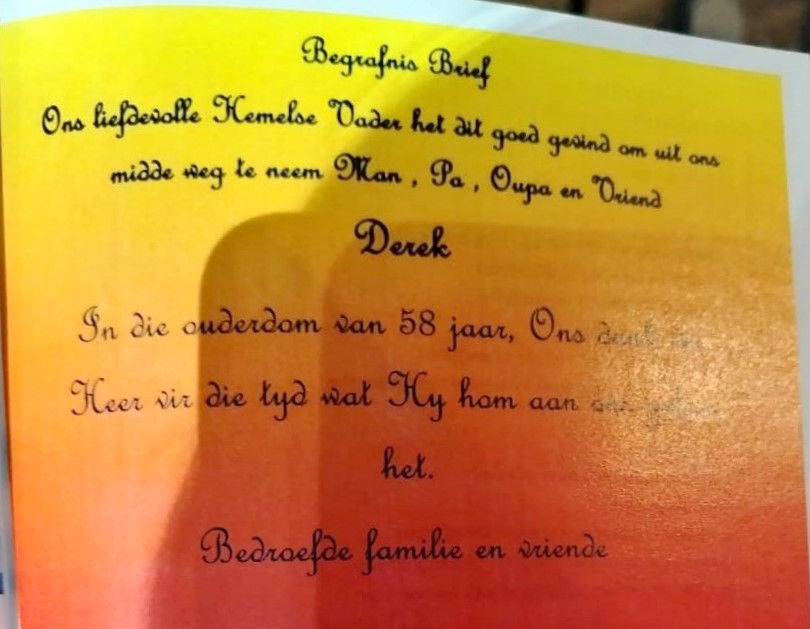 Begrafnis Brief
Ons liefdevolle Hemelse Vader het dit goed gevind om uit ons
midde weg te neem Man, Pa, Oupa en Vriend
Derek
In die ouderdom van 58 jaar, Ons
Heer vir die tyd wat Hy hom aan
het.
Bedroefde familie en vriende